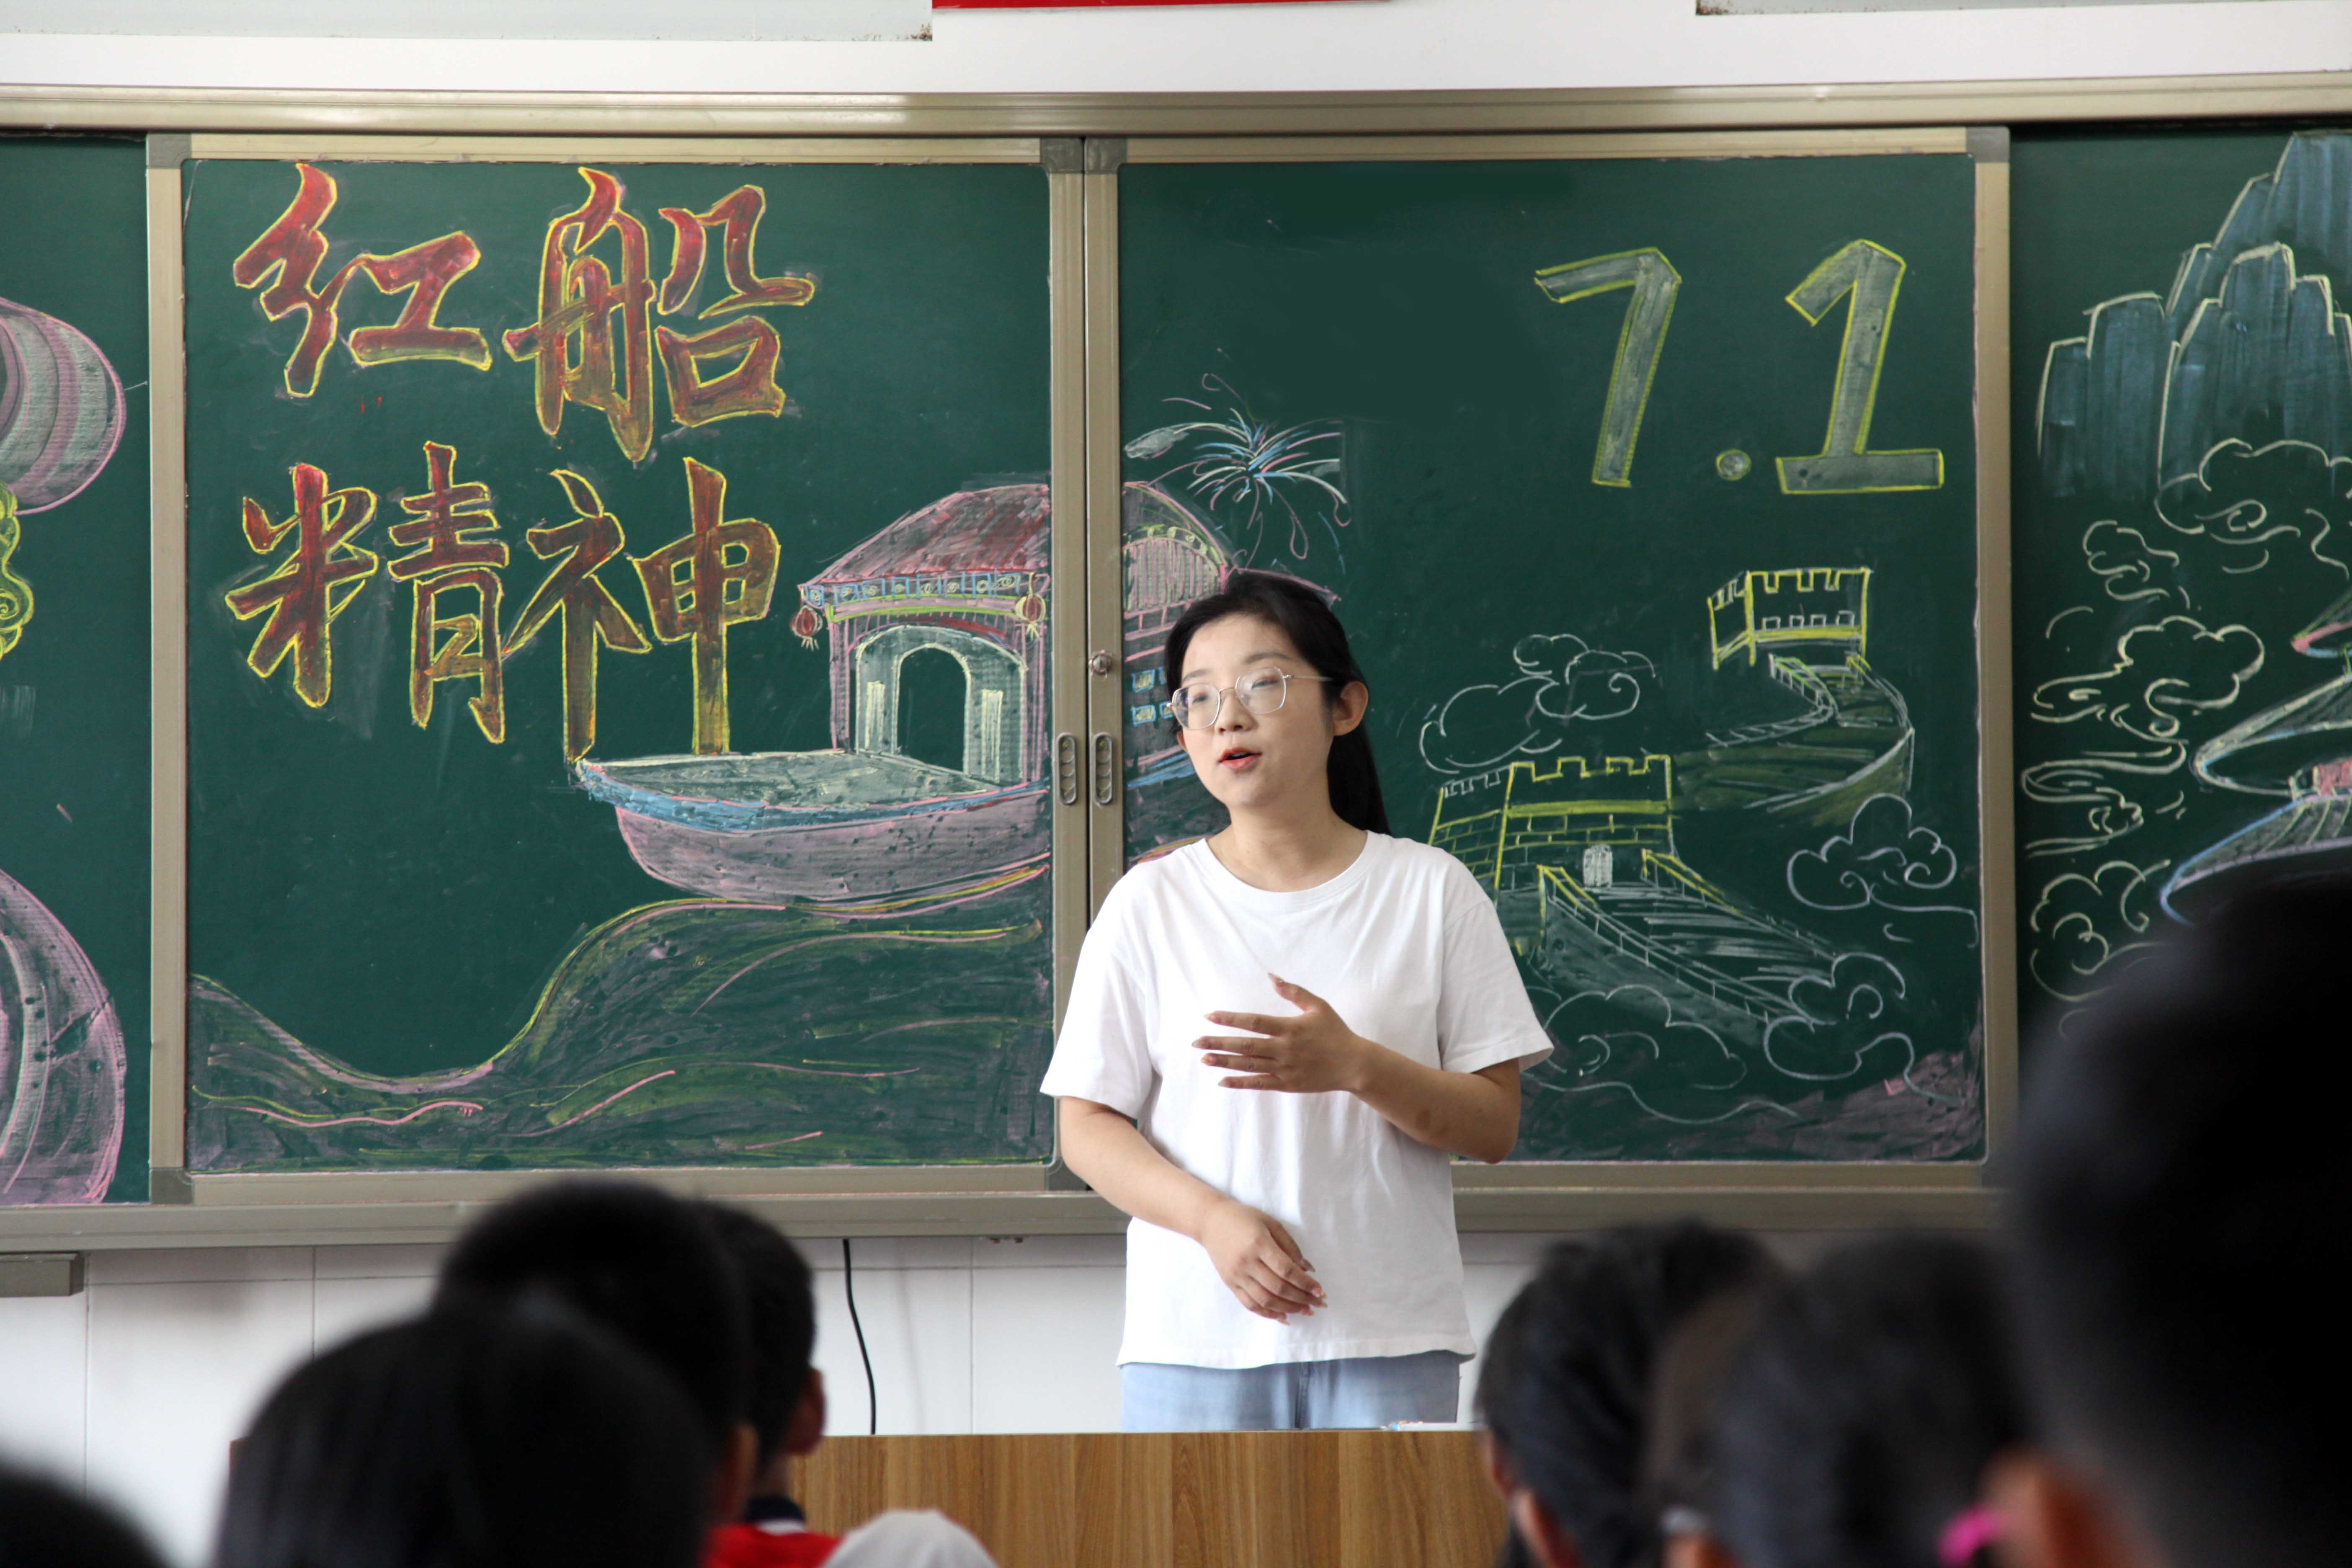 红船
精神
7.1